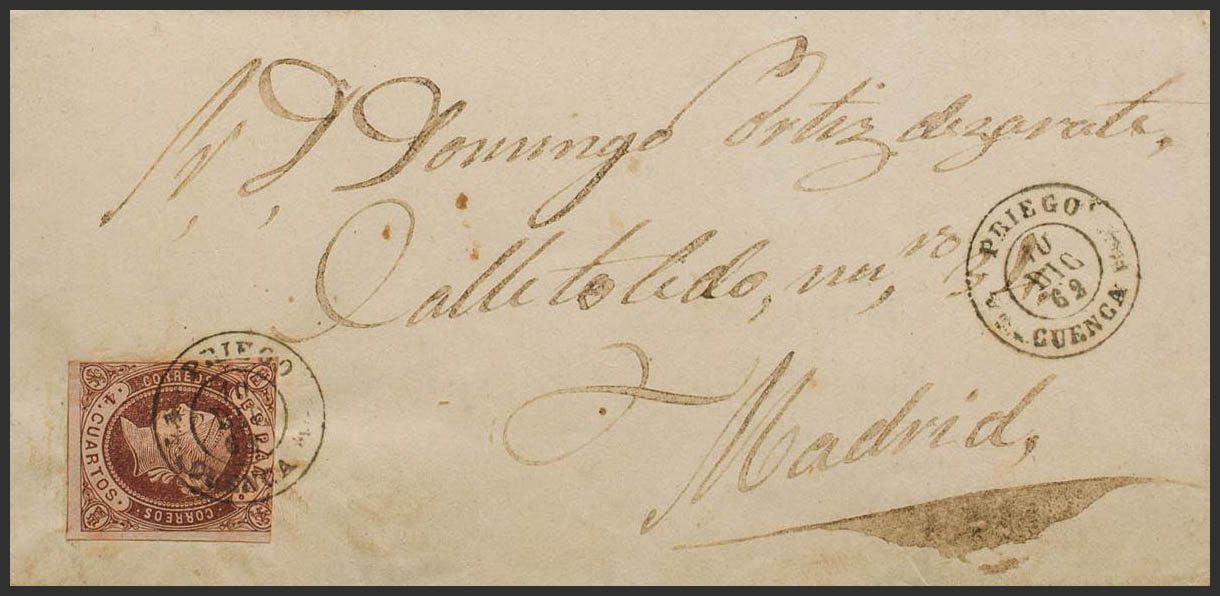 Sr. D. Domingo Ortiz dezarate,
Calle toledo, nu,ro
Madrid,
PRIEGO
10
DIC
62
CUENCA
PRIEGO
CUENCA
CORREOS
ESPAÑA
4 CUARTOS
CORREOS